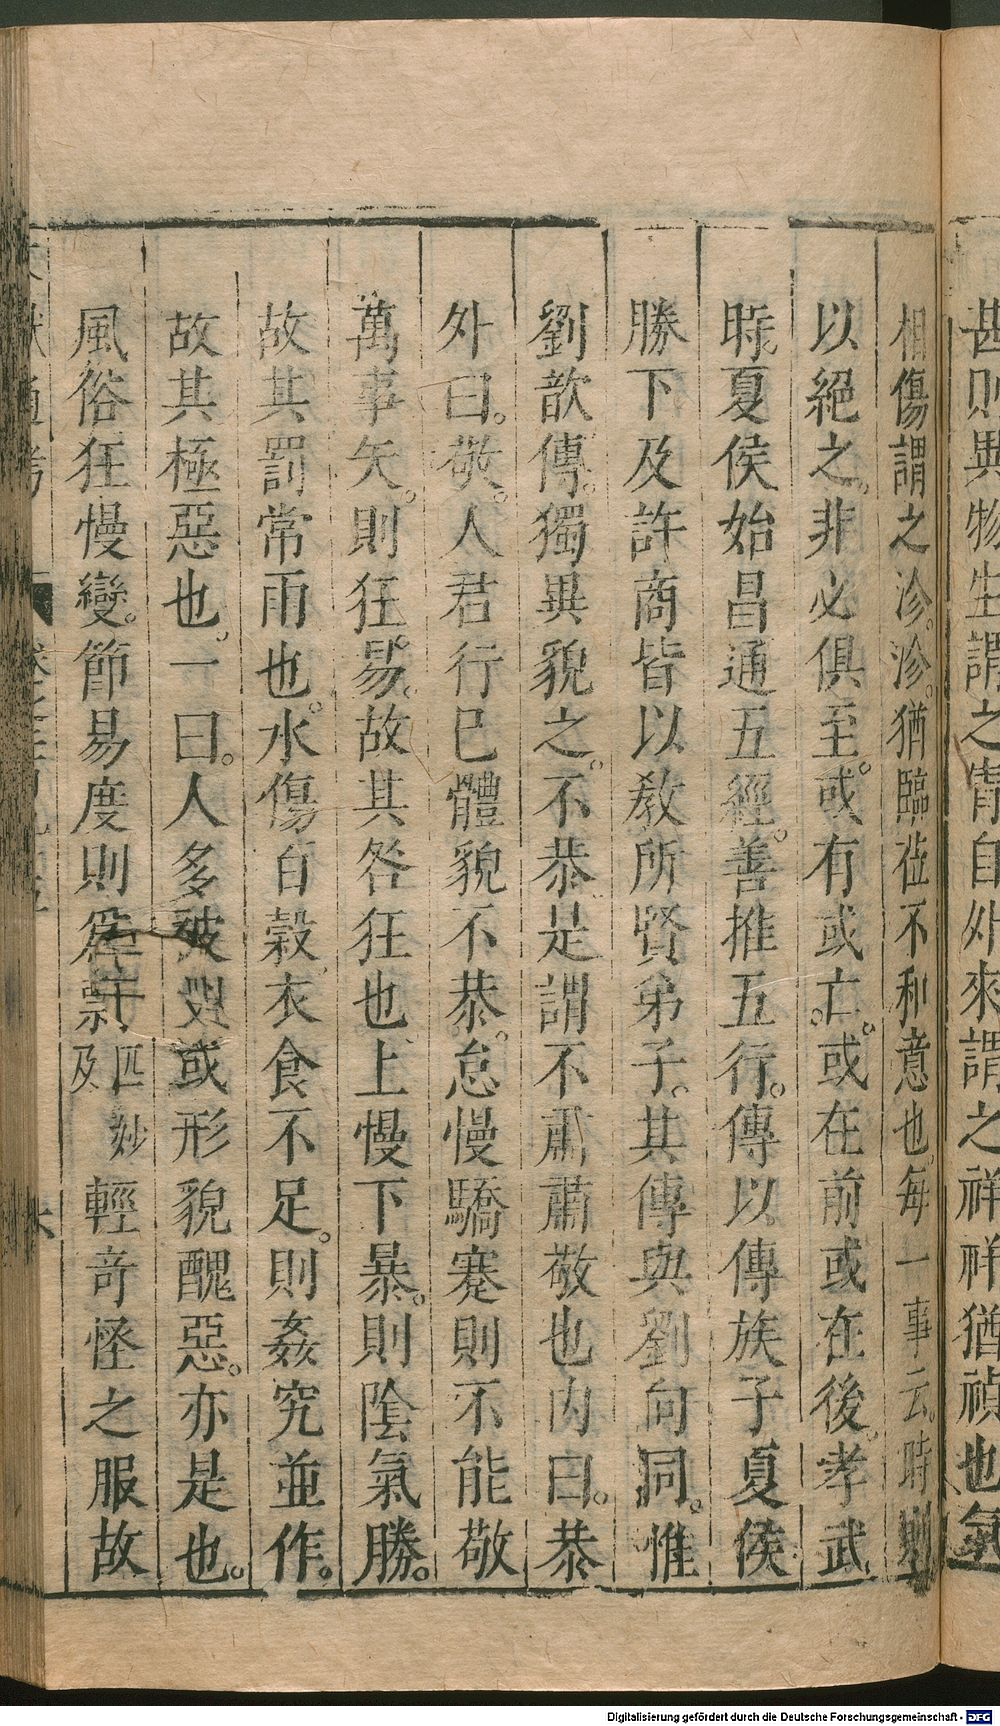 甚則異物生謂之眚自外來謂之祥祥猶禎也氣
相傷謂之沴。沴。猶臨莅不和意也。每一事云。時則
以絕之。非必俱至。或有或亡。或在前或在後。孝武
時。夏侯始昌通五經。善推五行。傳以傳族子夏侯
勝下及許商皆以教所賢弟子。其傳與劉向同。惟
劉歆傳。獨異貌之。不恭是謂不肅肅敬也內曰。恭
外曰。敬。人君行已體貌不恭。怠慢驕蹇則不能敬
萬事矢。則狂易。故其咎狂也。上慢下暴。則陰氣勝。
故其罰常雨也。水傷百穀。衣食不足。則姦宄並作。
故其極惡也。一曰。人多被刑或形貌醜惡。亦是也。
風俗狂慢變。節易度則為剽匹妙及輕奇怪之服故
Digitalisierung gefördert durch die Deutsche Forschungsgemeinschaft - DFG